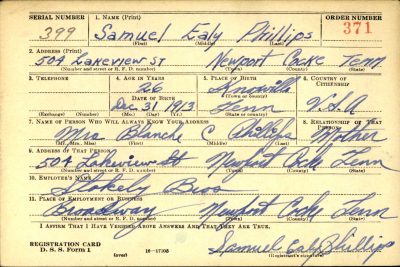 SERIAL NUMBER 1. NAME (Print) ORDER NUMBER
399 Samuel Ealy Phillips 371
(First) (Middle) (Last)
2. ADDRESS (Print)
504 Lakeview St Newport Cocke Tenn.
(Number and street or R. F. D. number) (Town) (County) (State)
3. TELEPHONE 4. AGE IN YEARS 5. PLACE OF BIRTH 6. COUNTRY OF CITIZENSHIP
26 Knoxville
DATE OF BIRTH (Town or County)
Dec. 31 1913 Tenn U.S.A
(Exchange) (No.) (Mo.) (Day) (Yr.) (State or country)
7. NAME OF PERSON WHO WILL ALWAYS KNOW YOUR ADDRESS 8. RELATIONSHIP OF THAT PERSON
Mrs Blanche C Phillips Mother
(Mr., Mrs., Miss) (First) (Middle) (Last)
9. ADDRESS OF THAT PERSON
504 Lakeview St Newport Cocke Tenn
(Number and street or R. F. D. number) (Town) (County) (State)
10. EMPLOYER'S NAME
Stokely Bros
11. PLACE OF EMPLOYMENT OR BUSINESS
Broadway Newport Cocke Tenn
(Number and street or R. F. D. number) (Town) (County) (State)
I AFFIRM THAT I HAVE VERIFIED ABOVE ANSWERS AND THAT THEY ARE TRUE.
REGISTRATION CARD
D. S. S. Form 1 16-17105 Samuel Ealy Phillips
(over) (Registrant's signature)